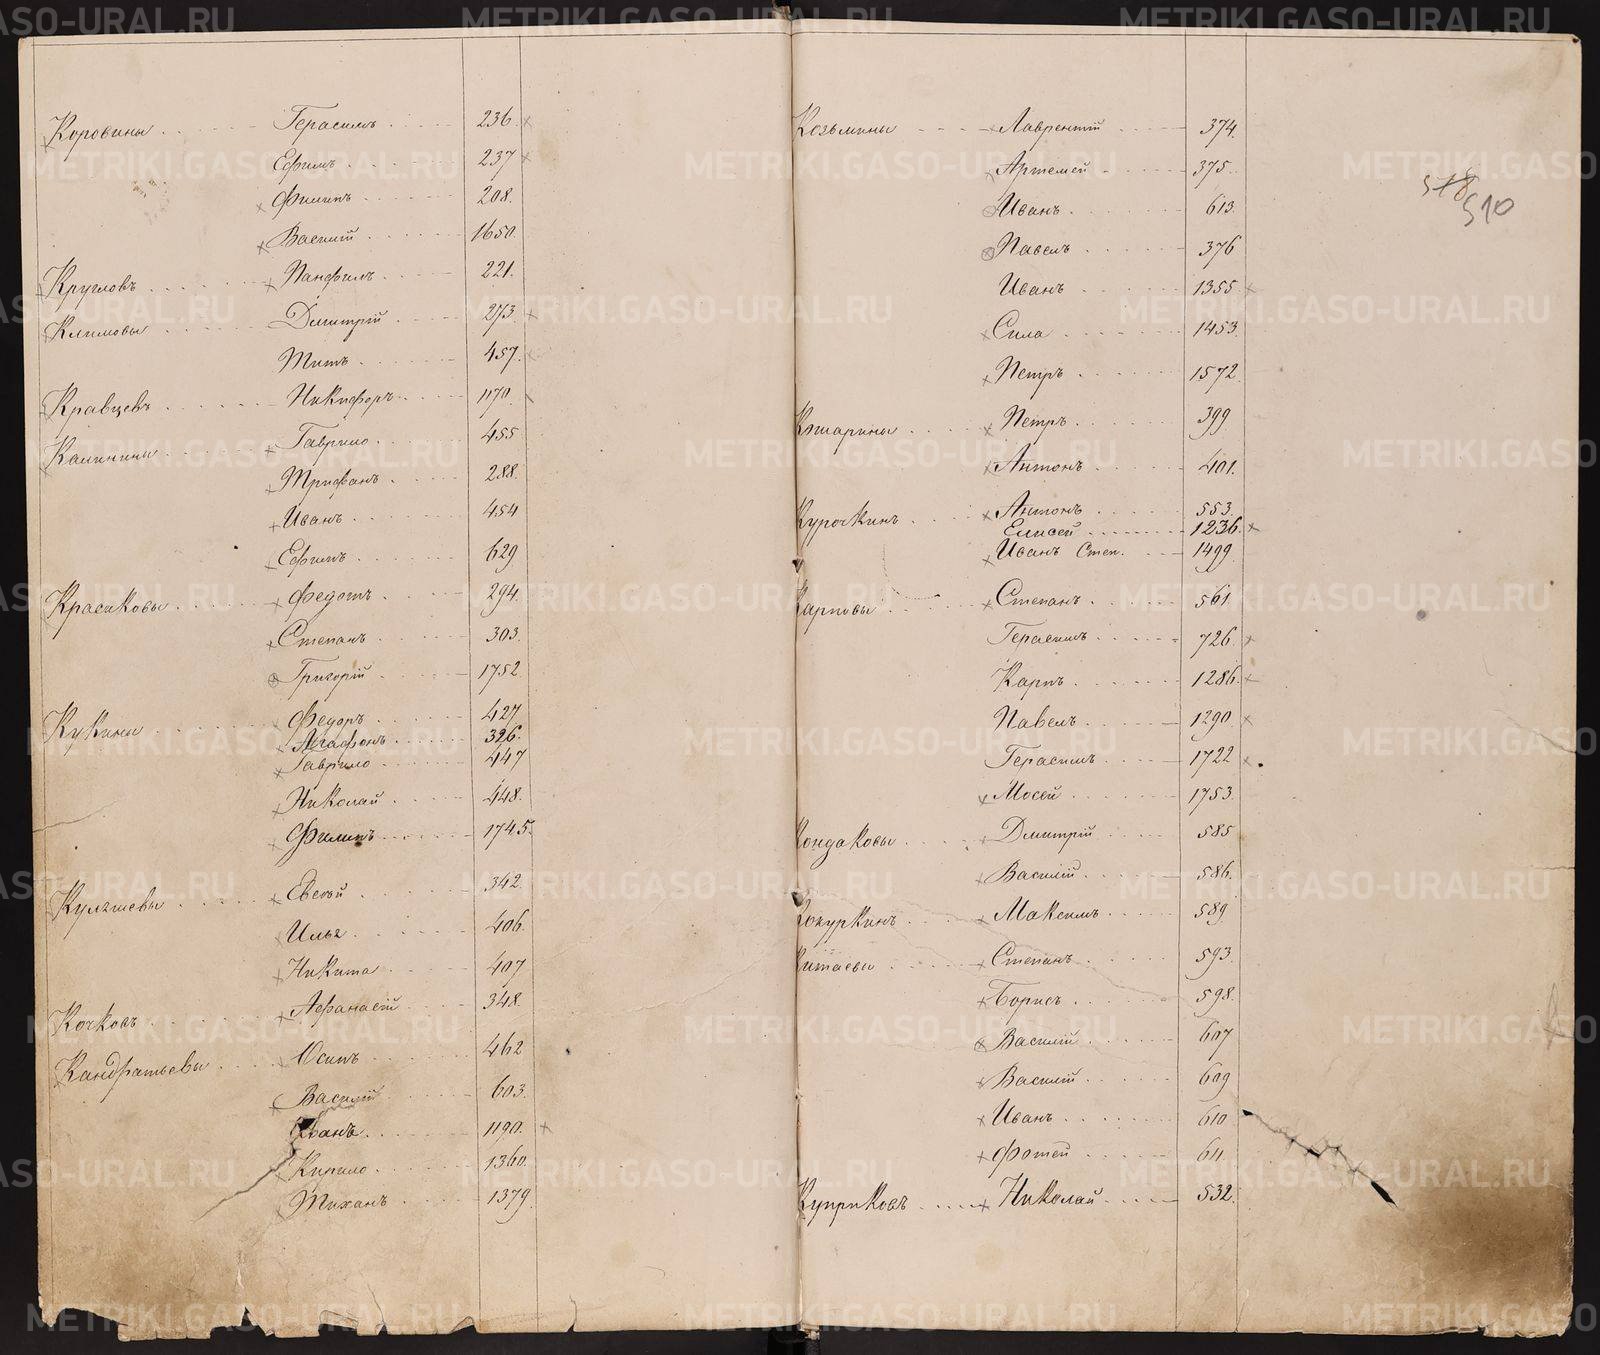 Коровины Герасимъ 236.
Ефимъ 237
Филипъ 208.
Василій 1650.
Кругловъ Панфилъ 221.
Климовы Дмитрій 273
Титъ 457.
Кравцевъ Никифоръ 1170.
Калинины Гаврило 455
Трифанъ 288.
Иванъ 454
Ефимъ 629
Красиковы Федотъ 294.
Степанъ 303.
Григорій 1752
Кукины Федоръ 427
Агафонъ 326.
Гаврило 447
Николай 448.
Филипъ 1745.
Кулышевы Евсѣй 342.
Илья 406.
Никита 407
Кочковъ Афанасій 348.
Кандратьевы Осипъ 462
Василій 603.
Иванъ 1190.
Кирило 1360.
Тиханъ 1379.
Козьмины Лаврентій 374.
Артемей 375.
Иванъ 613.
Павелъ 376
Иванъ 1355.
Сила 1453.
Петръ 1572.
Петръ 399
Антонъ 401.
Курочкинъ Антонъ 553.
Елисей 1236.
Иванъ Степ. 1499.
Карповы Степанъ 561.
Герасимъ 726.
Карпъ 1286.
Павелъ 1290.
Герасимъ 1722
Мосей 1753.
Кондаковы Дмитрій 585
Василій 586.
Кокуркинъ Максимъ 589
Китаевы Степанъ 593.
Борисъ 598.
Василій 607
Василій 609
Иванъ 610
Фотей 611.
Куприковъ Николай 532.
510
METRIKI.GASO-URAL.RU